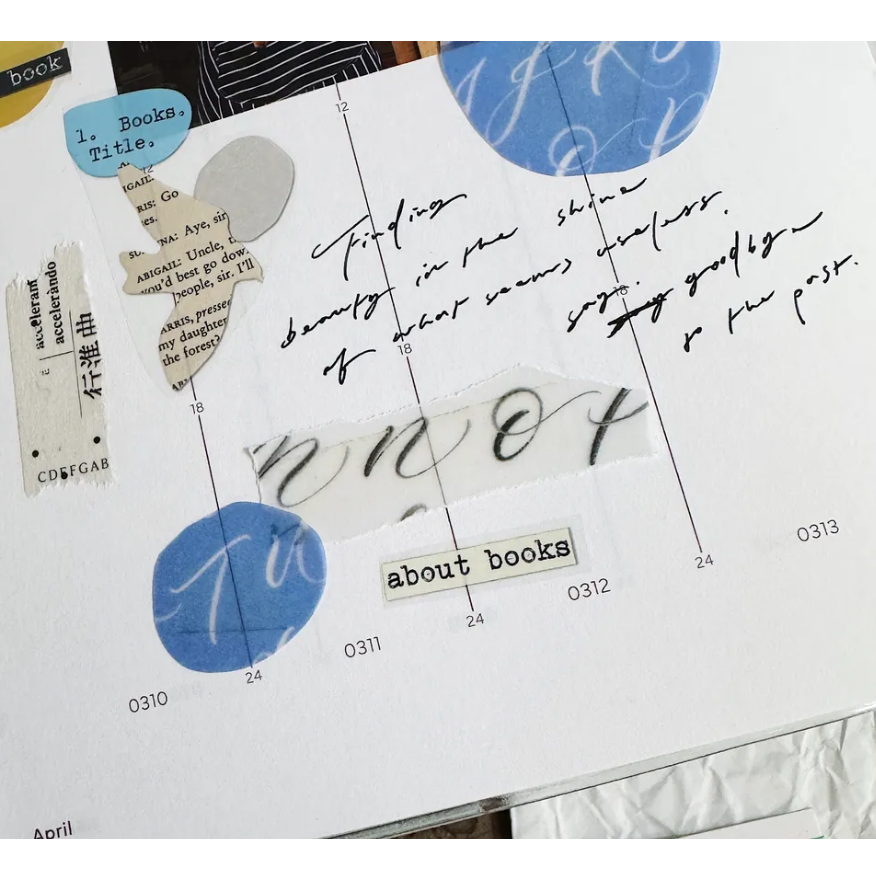 book
1. Books.
Title.
12
12
IGAIL:
RIS: Go
es.
NA: Aye, sir
ABIGAIL: Uncle,
you'd best go dow
people, sir. I'll
ARRIS, presse
my daughter
the forest?
AB
Finding
beauty in the shine
of what seems useless.
say goodbye
to the past.
acceleram
accelerando
行進曲
CDEFGAB
18
18
18
n n o t
T u
about books
24
24
24
0310
0311
0312
0313
April